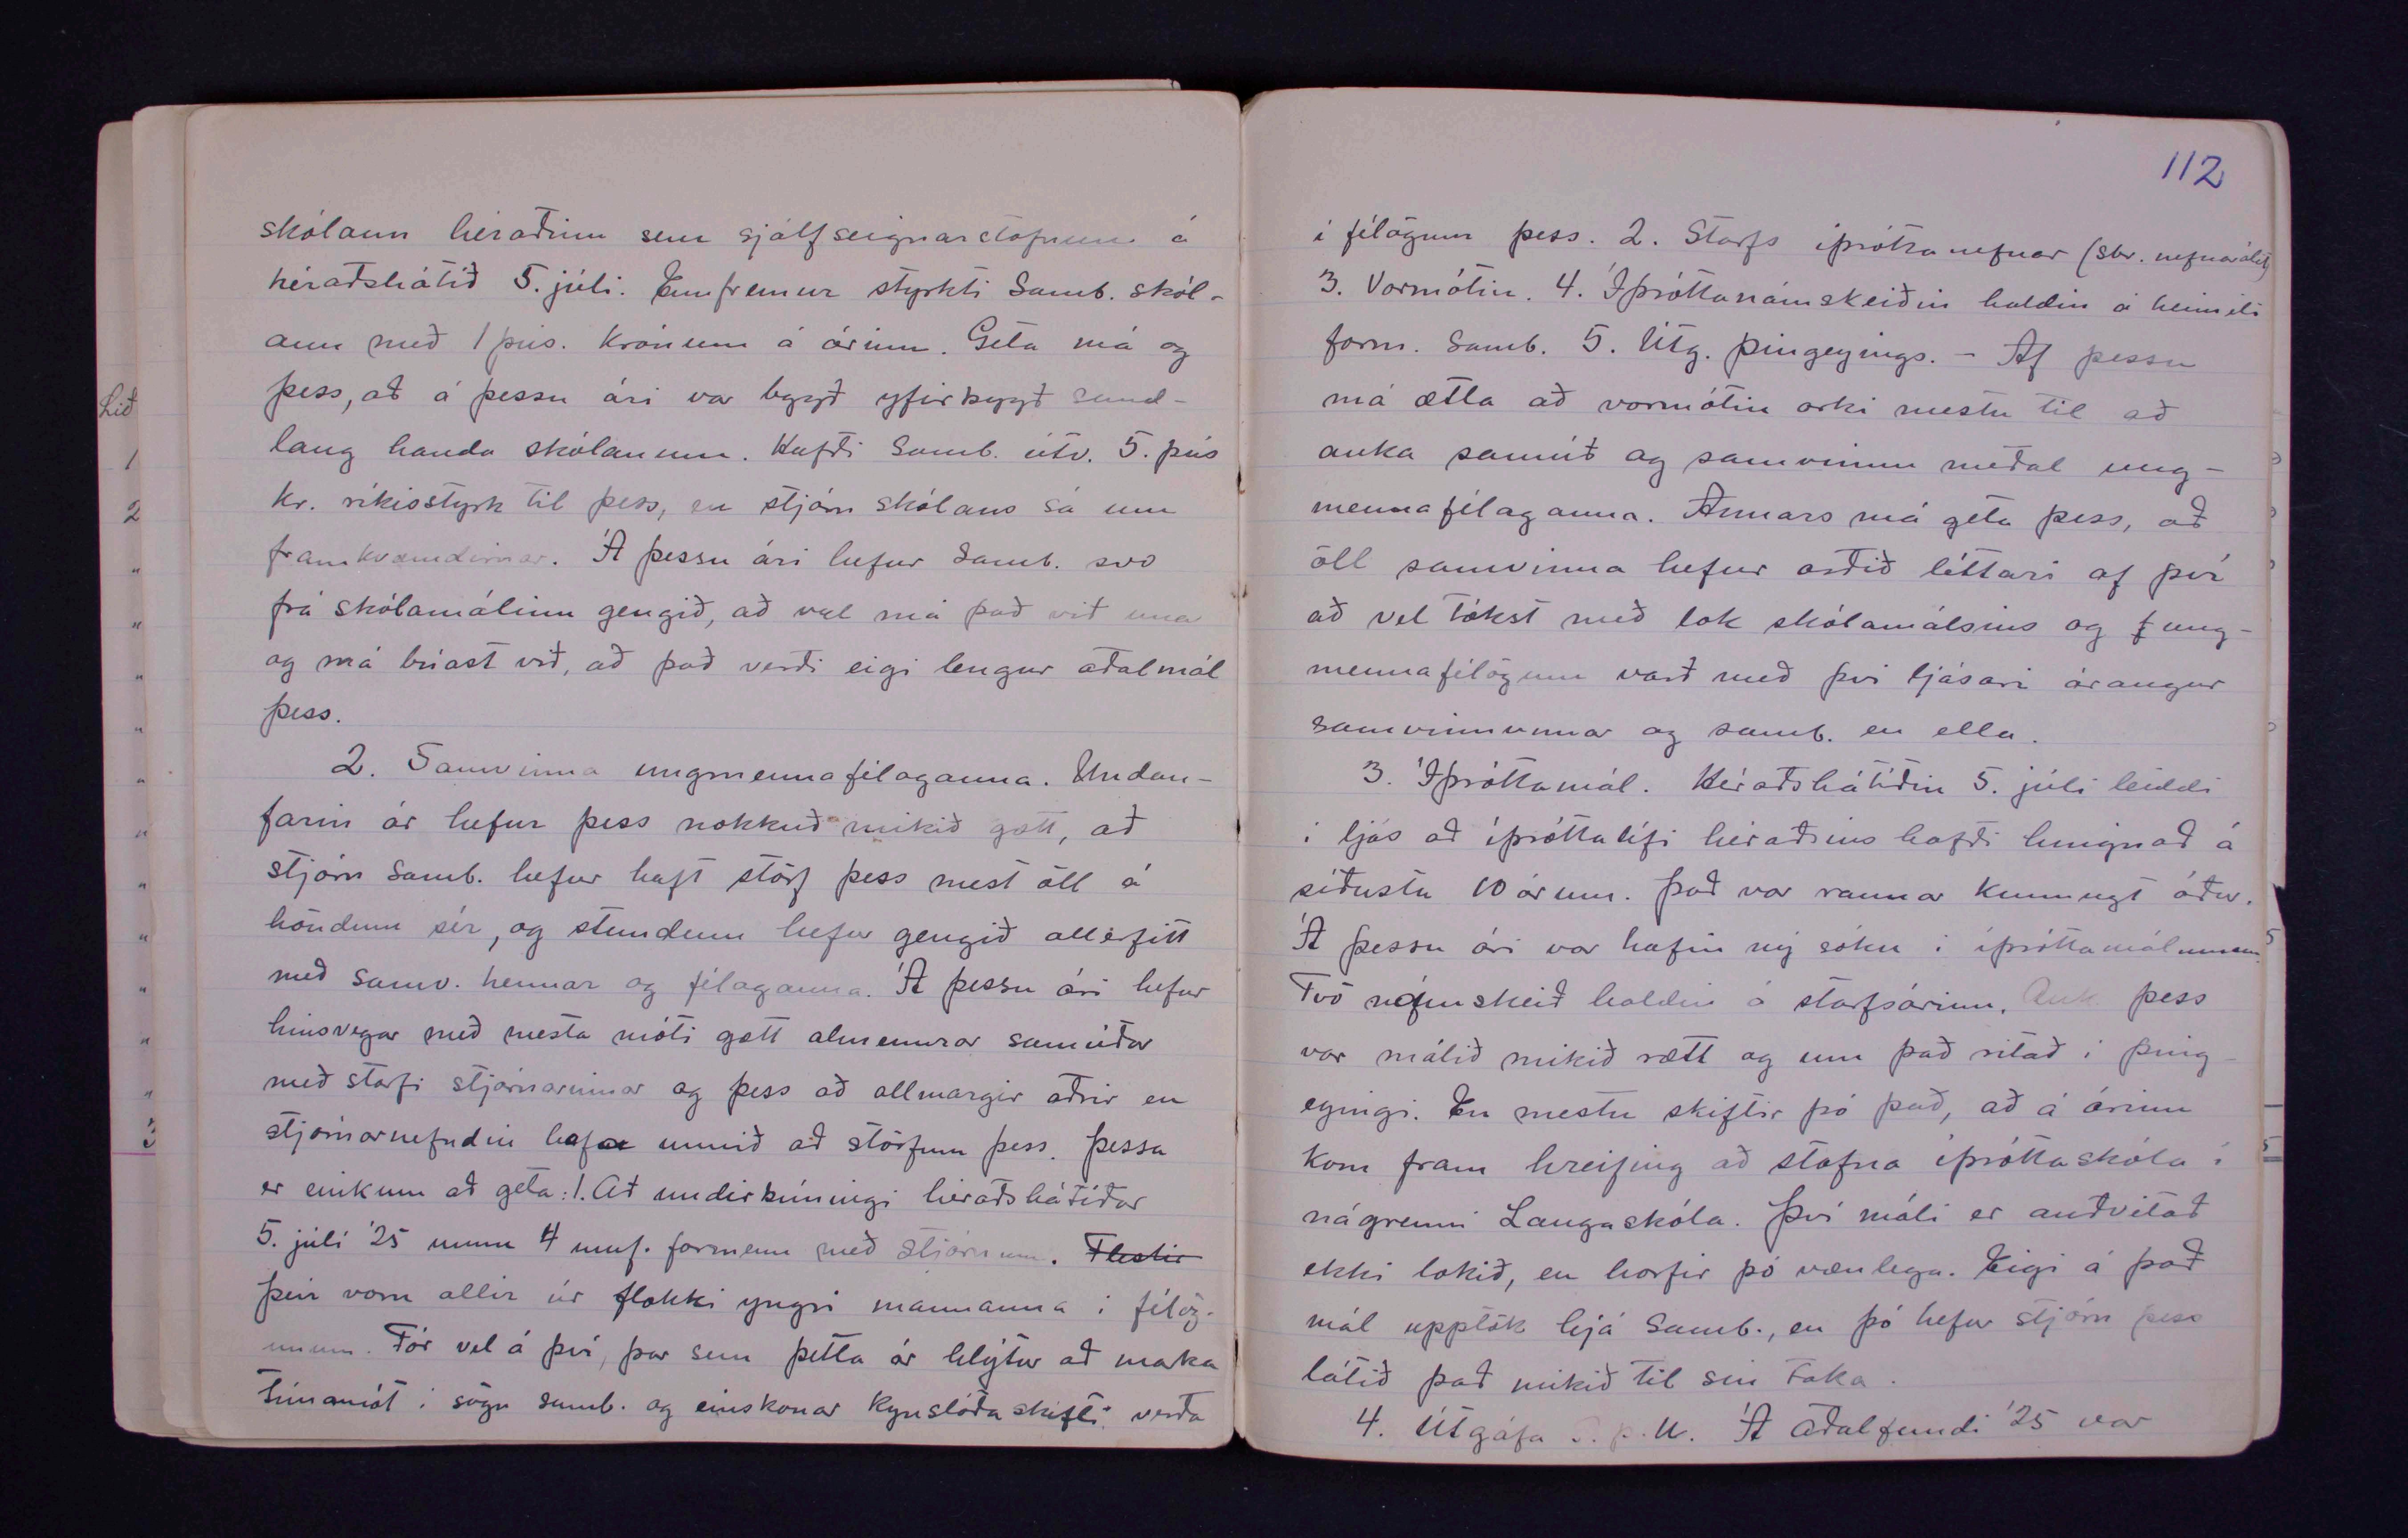 skólann héraðinu sem sjálfseignarstofnun á
héraðshátíð 5. júlí. Ennfremur styrkti Samb. skól-
ann með 1 þús. krónum á árinu. Geta má og
þess, að á þessu ári var bygð yfirbygð sund-
laug handa skólanum. Hafði Samb. útv. 5. þús
kr. ríkisstyrk til þess, en stjórn skólans sá um
framkvæmdirnar. Á þessu ári hefur Samb. svo
frá skólamálinu gengið, að vel má það við una
og má búast við, að það verði eigi lengur aðalmál
þess.
2. Samvinna ungmennafélaganna. Undan-
farin ár hefur þess nokkuð mikið gætt, að
stjórn Samb. hefur haft störf þess mest öll á
höndum sér, og stundum hefur gengið allerfitt
með samv. hennar og félaganna. Á þessu ári hefur
hinsvegar með mesta móti gætt almennrar samúðar
með starfi stjórnarinnar og þess að allmargir aðrir en
stjórnarnefndin hafa unnið að störfum þess. Þessa
er einkum að geta: 1. Að undirbúningi héraðshátíðar
5. júlí '25 unnu 4 umf. formenn með stjórninni. Flestir
þeir voru allir úr flokki yngri mannanna í félög-
unum. Fór vel á því, þar sem þetta ár hlýtur að marka
tímamót í sögu samb. og einskonar kynslóðaskifti verða
112
í félögum þess. 2. Starfs íþróttanefnar (sbr. nefnarálit)
3. Vormótin. 4. Íþróttanámskeiðin haldin á heimili
form. Samb. 5. Útg. Þingeyings. - Af þessu
má ætla að vormótin orki mestu til að
auka samúð og samvinnu meðal ung-
mennafélaganna. Annars má geta þess, að
öll samvinna hefur orðið léttari af því
að vel tókst með lok skólamálsins og ung-
mennafélögum varð með því ljósari árangur
samvinnunnar og samb. en ella.
3. Íþróttamál. Héraðshátíðin 5. júlí leiddi
í ljós að íþróttalífi héraðsins hafði hnignað á
síðustu 10 árum. Það var raunar kunnugt áður.
Á þessu ári var hafin ný sókn í íþróttamálunum.
Tvö námskeið haldin á starfsárinu. Auk þess
var málið mikið rætt og um það ritað í Þing-
eyingi. En mestu skiftir þó það, að á árinu
kom fram hreifing að stofna íþróttaskóla í
nágrenni Laugaskóla. Því máli er auðvitað
ekki lokið, en horfir þó vænlega. Eigi á það
mál upptök hjá Samb., en þó hefur stjórn þess
látið það mikið til sín taka.
4. Útgáfa S.þ.U. Á aðalfundi '25 var
Lið
1
2
"
"
"
"
"
"
"
"
"
"
"